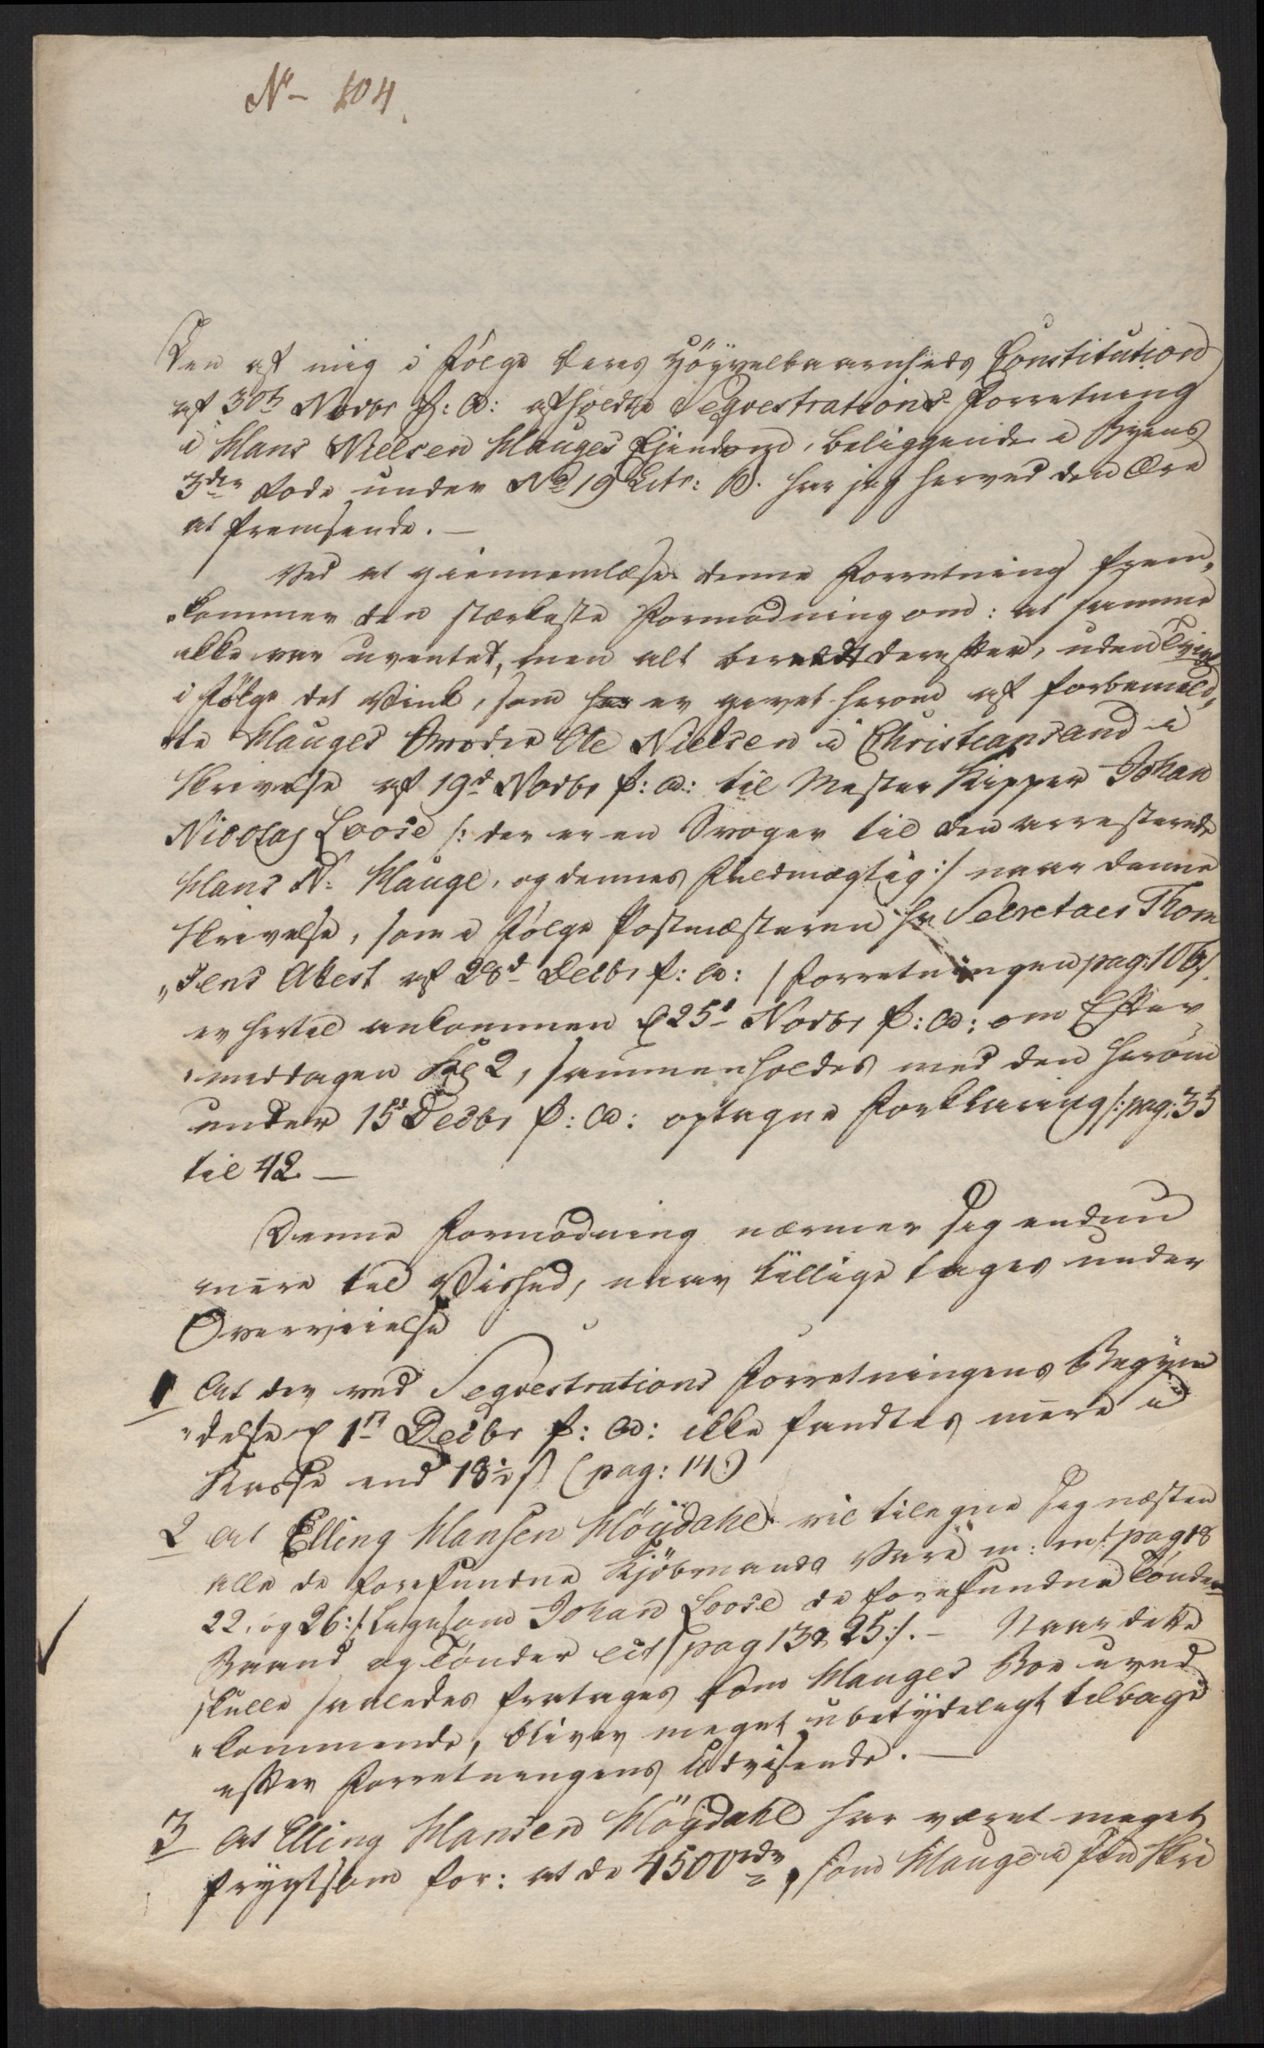 No 104.
Den af mig i Følge Deres Höyvelbaarenheds Constitution
af 30th Novbr f: A: afholdte Seqvestrations-Forretning
i Hans Nielsen Hauges Eiendom, beliggende i Byens
3die Rode under No 19 Litr: B. har jeg herved den Ære
at fremsende. —
Ved at giennemlæse denne Forretning frem,
"kommer den stærkeste Formodning om: at samme
ikke var uventet, men alt beredt derefter, uden Tvivl
i Følge det Vink, som er givet herom af forbemeld,
te Hauges Broder Ole Nielsen i Christiansand i
Skrivelse af 19d Novbr f: a: til Mester Kipper Johan
Nicolaj Loose /: der er en Svoger til den arresterede
Hans N: Hauge, og dennes Fuldmægtig :/ naar denne
Skrivelse, som i Følge Postmæsteren Hr Secretaer Thom
"sens Attest af 28d Decbr f: A: / Forretningen pag: 106/.
er hertil ankommen d 25d Novbr f: A: om Efter,
"middagen Kl 2, sammenholdes med den herom
under 15d Decbr f: A: optagne Forklaring /: pag: 35
til 42 —
Denne Formodning nærmer sig endnu
mere til Vished, naar tillige tages under
Overveielse
1 At der ved Seqvestrations Forretningens Begyn
"delse d 1ste Decbr f: A: ikke fandtes mere i
Kasse end 18½ s (pag: 14:)
2 At Elling Hansen Höydahl vil tilegne sig næsten
alle de forefundne Kjöbmands Vare m: m: /: pag 18
22, og 26 :/ ligesom Johan Loose de forefundne Tönder
Baand og Tönder etc / pag 13 & 25 :/. — Naar dette
skulle saaledes fratages som Hauges Boe uved
"kommende, bliver meget ubetydeligt tilbage
efter Forretningens Udvisende. —
3 At Elling Hansen Höydahl har været meget
frygtsom for: at de 4500 rdr, som Hauge i sin Skri